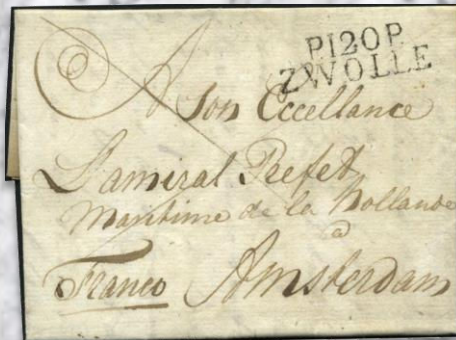 P120P
ZWOLLE
A Son Eccellance
L'amiral Prefet
Maritime de la Hollande
a
Franco Amsterdam